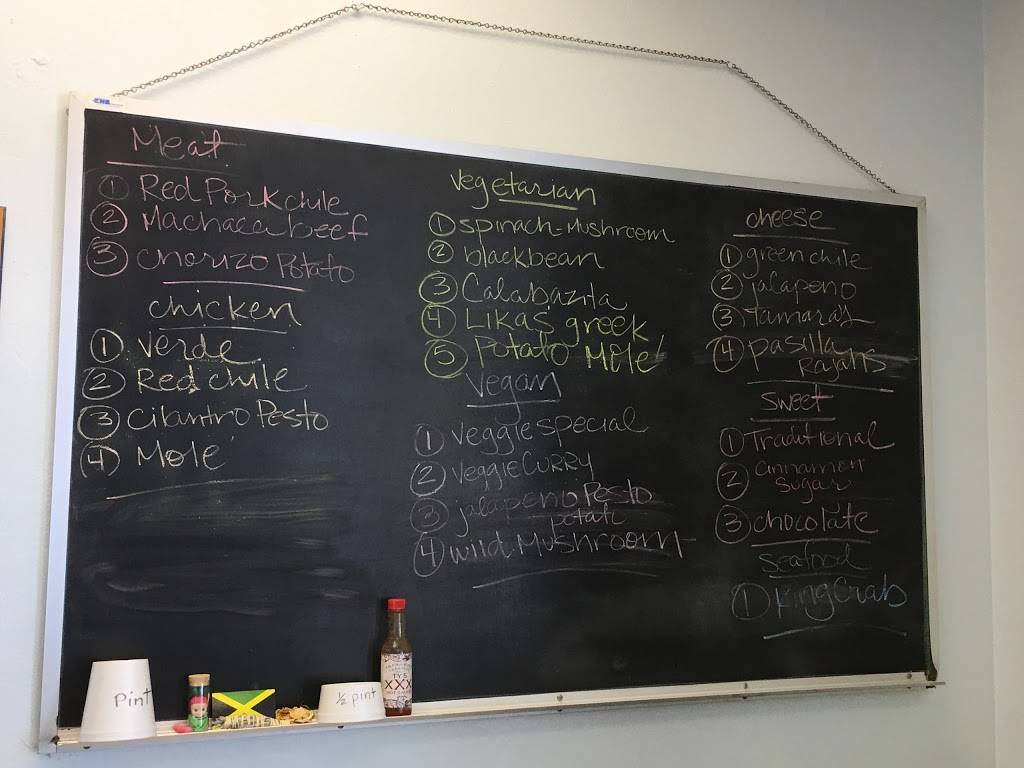 Meat
① Red Pork chile
② Machaca beef
③ Chorizo Potato
chicken
① verde
② Red chile
③ cilantro Pesto
④ Molé
vegetarian
① spinach-Mushroom
② blackbean
③ Calabazita
④ Likas greek
⑤ potato Mole'
Vegan
① veggie special
② veggie CURRY
③ jalapeno Pesto
potato
④ wild Mushroom
cheese
① green chile
② jalapeno
③ Tamara's
④ pasilla
Rajahs
sweet
① Traditional
② cinnamon
sugar
③ chocolate
Seafood
① King Crab
Pint
½ pint
TY'S
XXX
HOT SAUCE